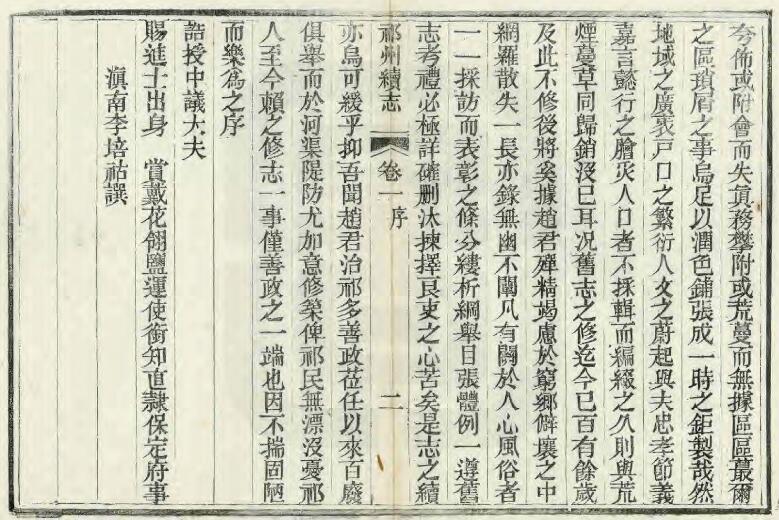 夸佈或附會而失眞務攀附或荒蔓而無據區區蕞爾
之區瑣屑之事烏足以潤色鋪張成一時之鉅製哉然
地域之廣袤戸口之繁衍人文之蔚起與夫忠孝節義
嘉言懿行之膾炙人口者不採輯而編綴之久則與荒
煙蔓草同歸銷沒已耳況舊志之修迄今已百有餘歲
及此不修後將奚據趙君殫精竭慮於窮鄉僻壤之中
網羅散失一長亦錄無幽不闡凡有關於人心風俗者
一一採訪而表彰之條分縷析綱舉目張體例一遵舊
志考禮必極詳確刪汰揀擇良吏之心苦矣是志之續
祁州續志 卷一 序 二
亦烏可緩乎抑吾聞趙君治祁多善政莅任以來百廢
俱舉而於河渠隄防尤加意修築俾祁民無漂沒憂祁
人至今賴之修志一事僅善政之一端也因不揣固陋
而樂爲之序
誥授中議大夫
賜進士出身 賞戴花翎鹽運使銜知直隷保定府事
滇南李培祜譔